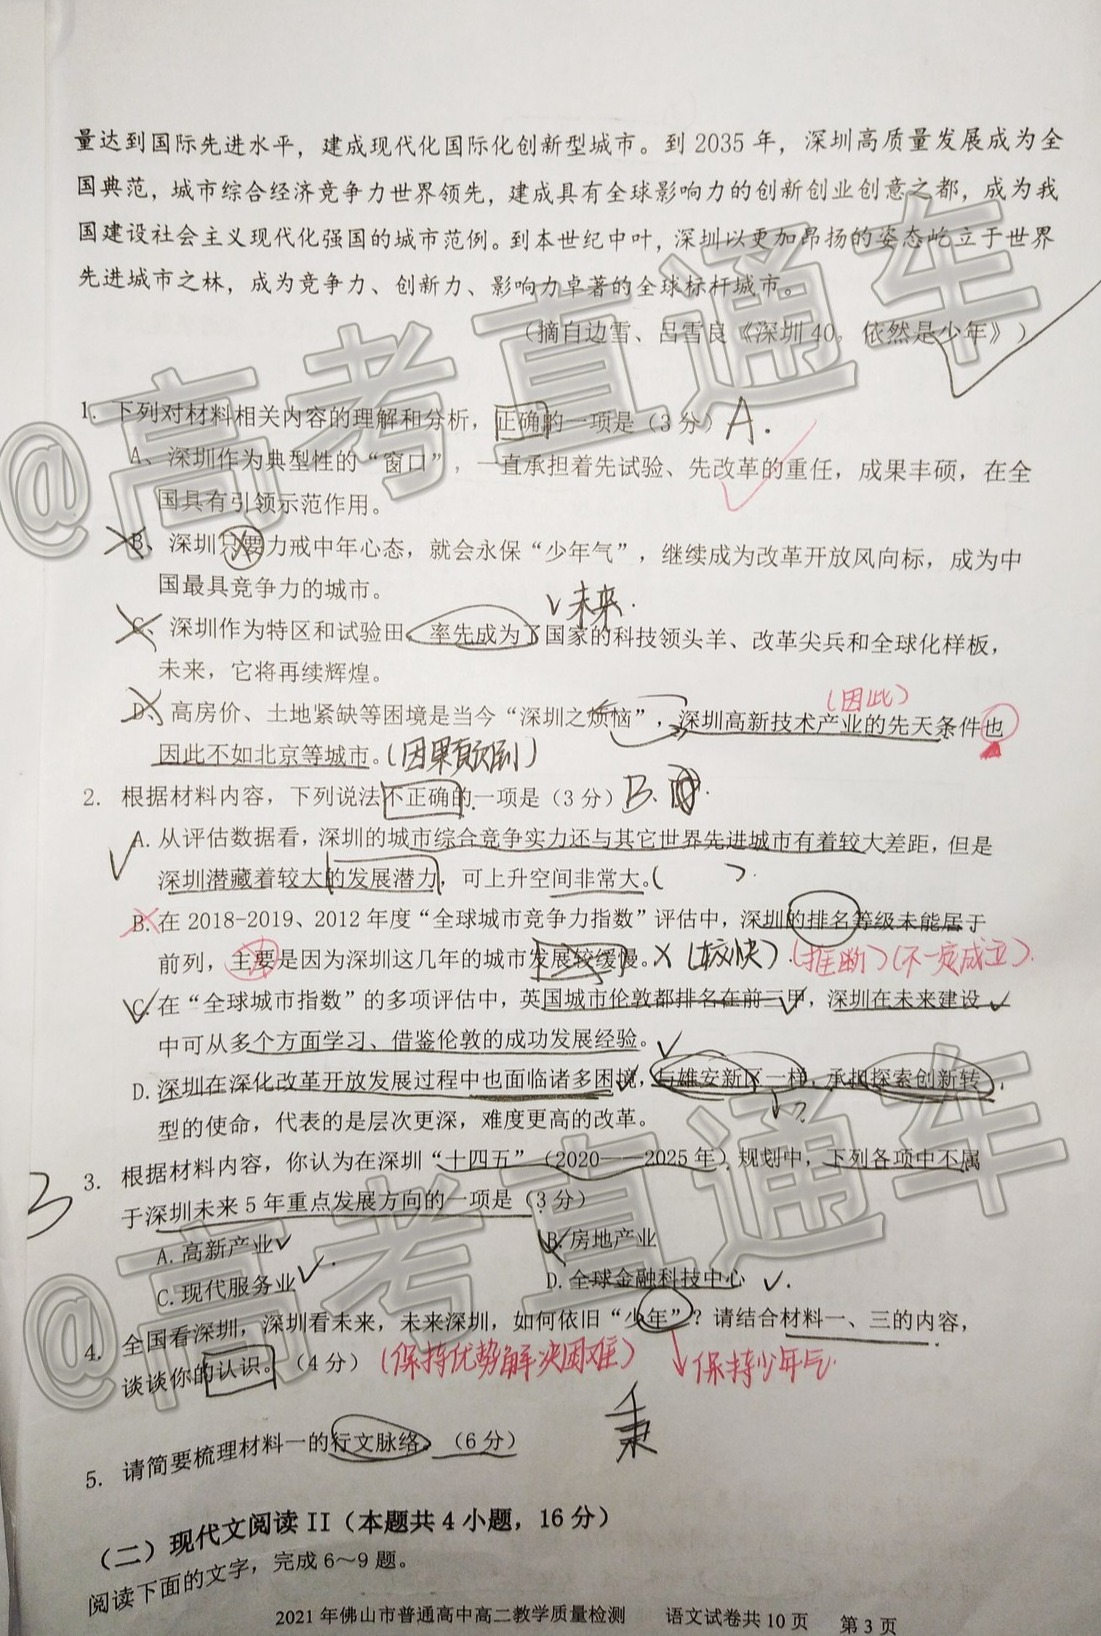 量达到国际先进水平，建成现代化国际化创新型城市。到 2035 年，深圳高质量发展成为全
国典范，城市综合经济竞争力世界领先，建成具有全球影响力的创新创业创意之都，成为我
国建设社会主义现代化强国的城市范例。到本世纪中叶，深圳以更加昂扬的姿态屹立于世界
先进城市之林，成为竞争力、创新力、影响力卓著的全球标杆城市。
（摘自边雪、吕雪良《深圳 40，依然是少年》）
1. 下列对材料相关内容的理解和分析，正确的一项是（3 分）A.
A、深圳作为典型性的“窗口”，一直承担着先试验、先改革的重任，成果丰硕，在全
国具有引领示范作用。
B、深圳只要力戒中年心态，就会永保“少年气”，继续成为改革开放风向标，成为中
国最具竞争力的城市。
未来.
C、深圳作为特区和试验田，率先成为了国家的科技领头羊、改革尖兵和全球化样板，
未来，它将再续辉煌。
(因此)
D、高房价、土地紧缺等困境是当今“深圳之烦恼”，深圳高新技术产业的先天条件也
因此不如北京等城市。(因果颠倒)
2. 根据材料内容，下列说法不正确的一项是（3 分）B、
A. 从评估数据看，深圳的城市综合竞争实力还与其它世界先进城市有着较大差距，但是
深圳潜藏着较大的发展潜力，可上升空间非常大。( )
B. 在 2018-2019、2012 年度“全球城市竞争力指数”评估中，深圳的排名等级未能居于
前列，主要是因为深圳这几年的城市发展较缓慢。X (较快).(推断)(不一定成立).
C. 在“全球城市指数”的多项评估中，英国城市伦敦都排名在前三甲，深圳在未来建设
中可从多个方面学习、借鉴伦敦的成功发展经验。
D. 深圳在深化改革开放发展过程中也面临诸多困境，与雄安新区一样，承担探索创新转
型的使命，代表的是层次更深，难度更高的改革。
3. 根据材料内容，你认为在深圳“十四五”（2020——2025 年）规划中，下列各项中不属
于深圳未来 5 年重点发展方向的一项是（3 分）
A. 高新产业 B. 房地产业
C. 现代服务业 D. 全球金融科技中心
4. 全国看深圳，深圳看未来，未来深圳，如何依旧“少年”？请结合材料一、三的内容，
谈谈你的认识。（4 分）(保持优势解决困难) 保持少年气.
5. 请简要梳理材料一的行文脉络。（6 分）
（二）现代文阅读 II（本题共 4 小题，16 分）
阅读下面的文字，完成 6～9 题。
2021 年佛山市普通高中高二教学质量检测 语文试卷共 10 页 第 3 页
@高考直通车
@高考直通车